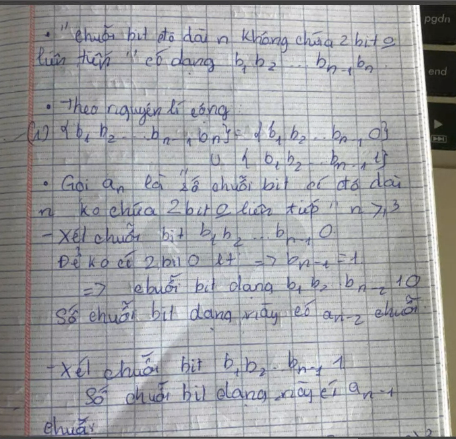 pgdn
end
• "chuỗi bit độ dài n không chứa 2 bit 0
liên tiếp" có dạng b₁ b₂ ... bₙ₋₁ bₙ
• Theo nguyên lí cộng
(1) {b₁ b₂ ... bₙ₋₁ bₙ} = {b₁ b₂ ... bₙ₋₁ 0}
U {b₁ b₂ ... bₙ₋₁ 1}
• Gọi aₙ là "số chuỗi bit có độ dài
n ko chứa 2 bit 0 liên tiếp" n ≥ 3
- Xét chuỗi bit b₁ b₂ ... bₙ₋₁ 0
Để ko có 2 bit 0 lt => bₙ₋₁ = 1
=> chuỗi bit dạng b₁ b₂ bₙ₋₂ 10
Số chuỗi bit dạng này có aₙ₋₂ chuỗi
- Xét chuỗi bit b₁ b₂ .. bₙ₋₁ 1
Số chuỗi bit dạng này có aₙ₋₁
chuỗi